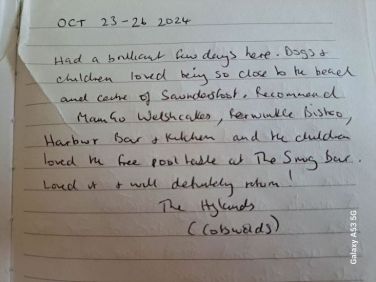 OCT 23-26 2024
Had a brilliant few days here. Dogs &
children loved being so close to the beach
and centre of Saundersfoot. Recommend
MamGu Welshcakes, Periwinkle Bistro,
Harbwr Bar & Kitchen and the children
loved the free pool table at The Snug Bar.
Loved it & will definitely return!
The Hylands
(Cotswolds)
Galaxy A53 5G